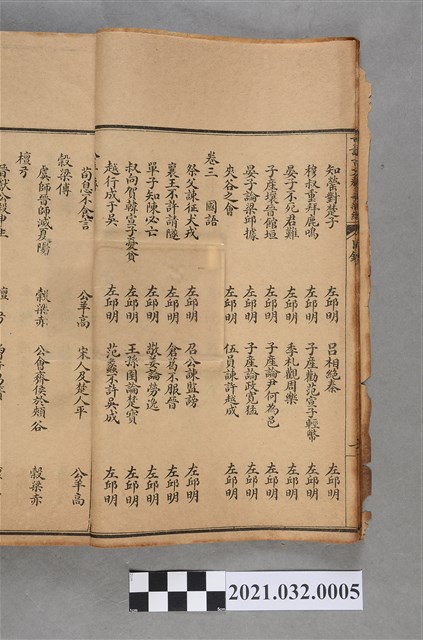 知罃對楚子 左邱明 呂相絶秦 左邱明
穆叔重拜鹿鳴 左邱明 子產勸范宣子輕幣 左邱明
晏子不死君難 左邱明 季札觀周樂 左邱明
子產壞晉館垣 左邱明 子產論尹何為邑 左邱明
晏子論梁邱據 左邱明 子產論政寛猛 左邱明
夾谷之會 左邱明 伍員諫許越成 左邱明
卷三 國語
祭父諫征犬戎 左邱明 召公諫監謗 左邱明
襄王不許請隧 左邱明 倉葛不服晉 左邱明
單子知陳必亡 左邱明 敬姜論勞逸 左邱明
叔向賀韓宣子憂貧 左邱明 王孫圉論楚寶 左邱明
越行成于吳 左邱明 范蠡不許吳成 左邱明
荀息不食言 公羊高 宋人及楚人平 公羊高
穀梁傳
虞師晉師滅夏陽 穀梁赤 公會齊侯於頰谷 穀梁赤
檀弓
2021.032.0005